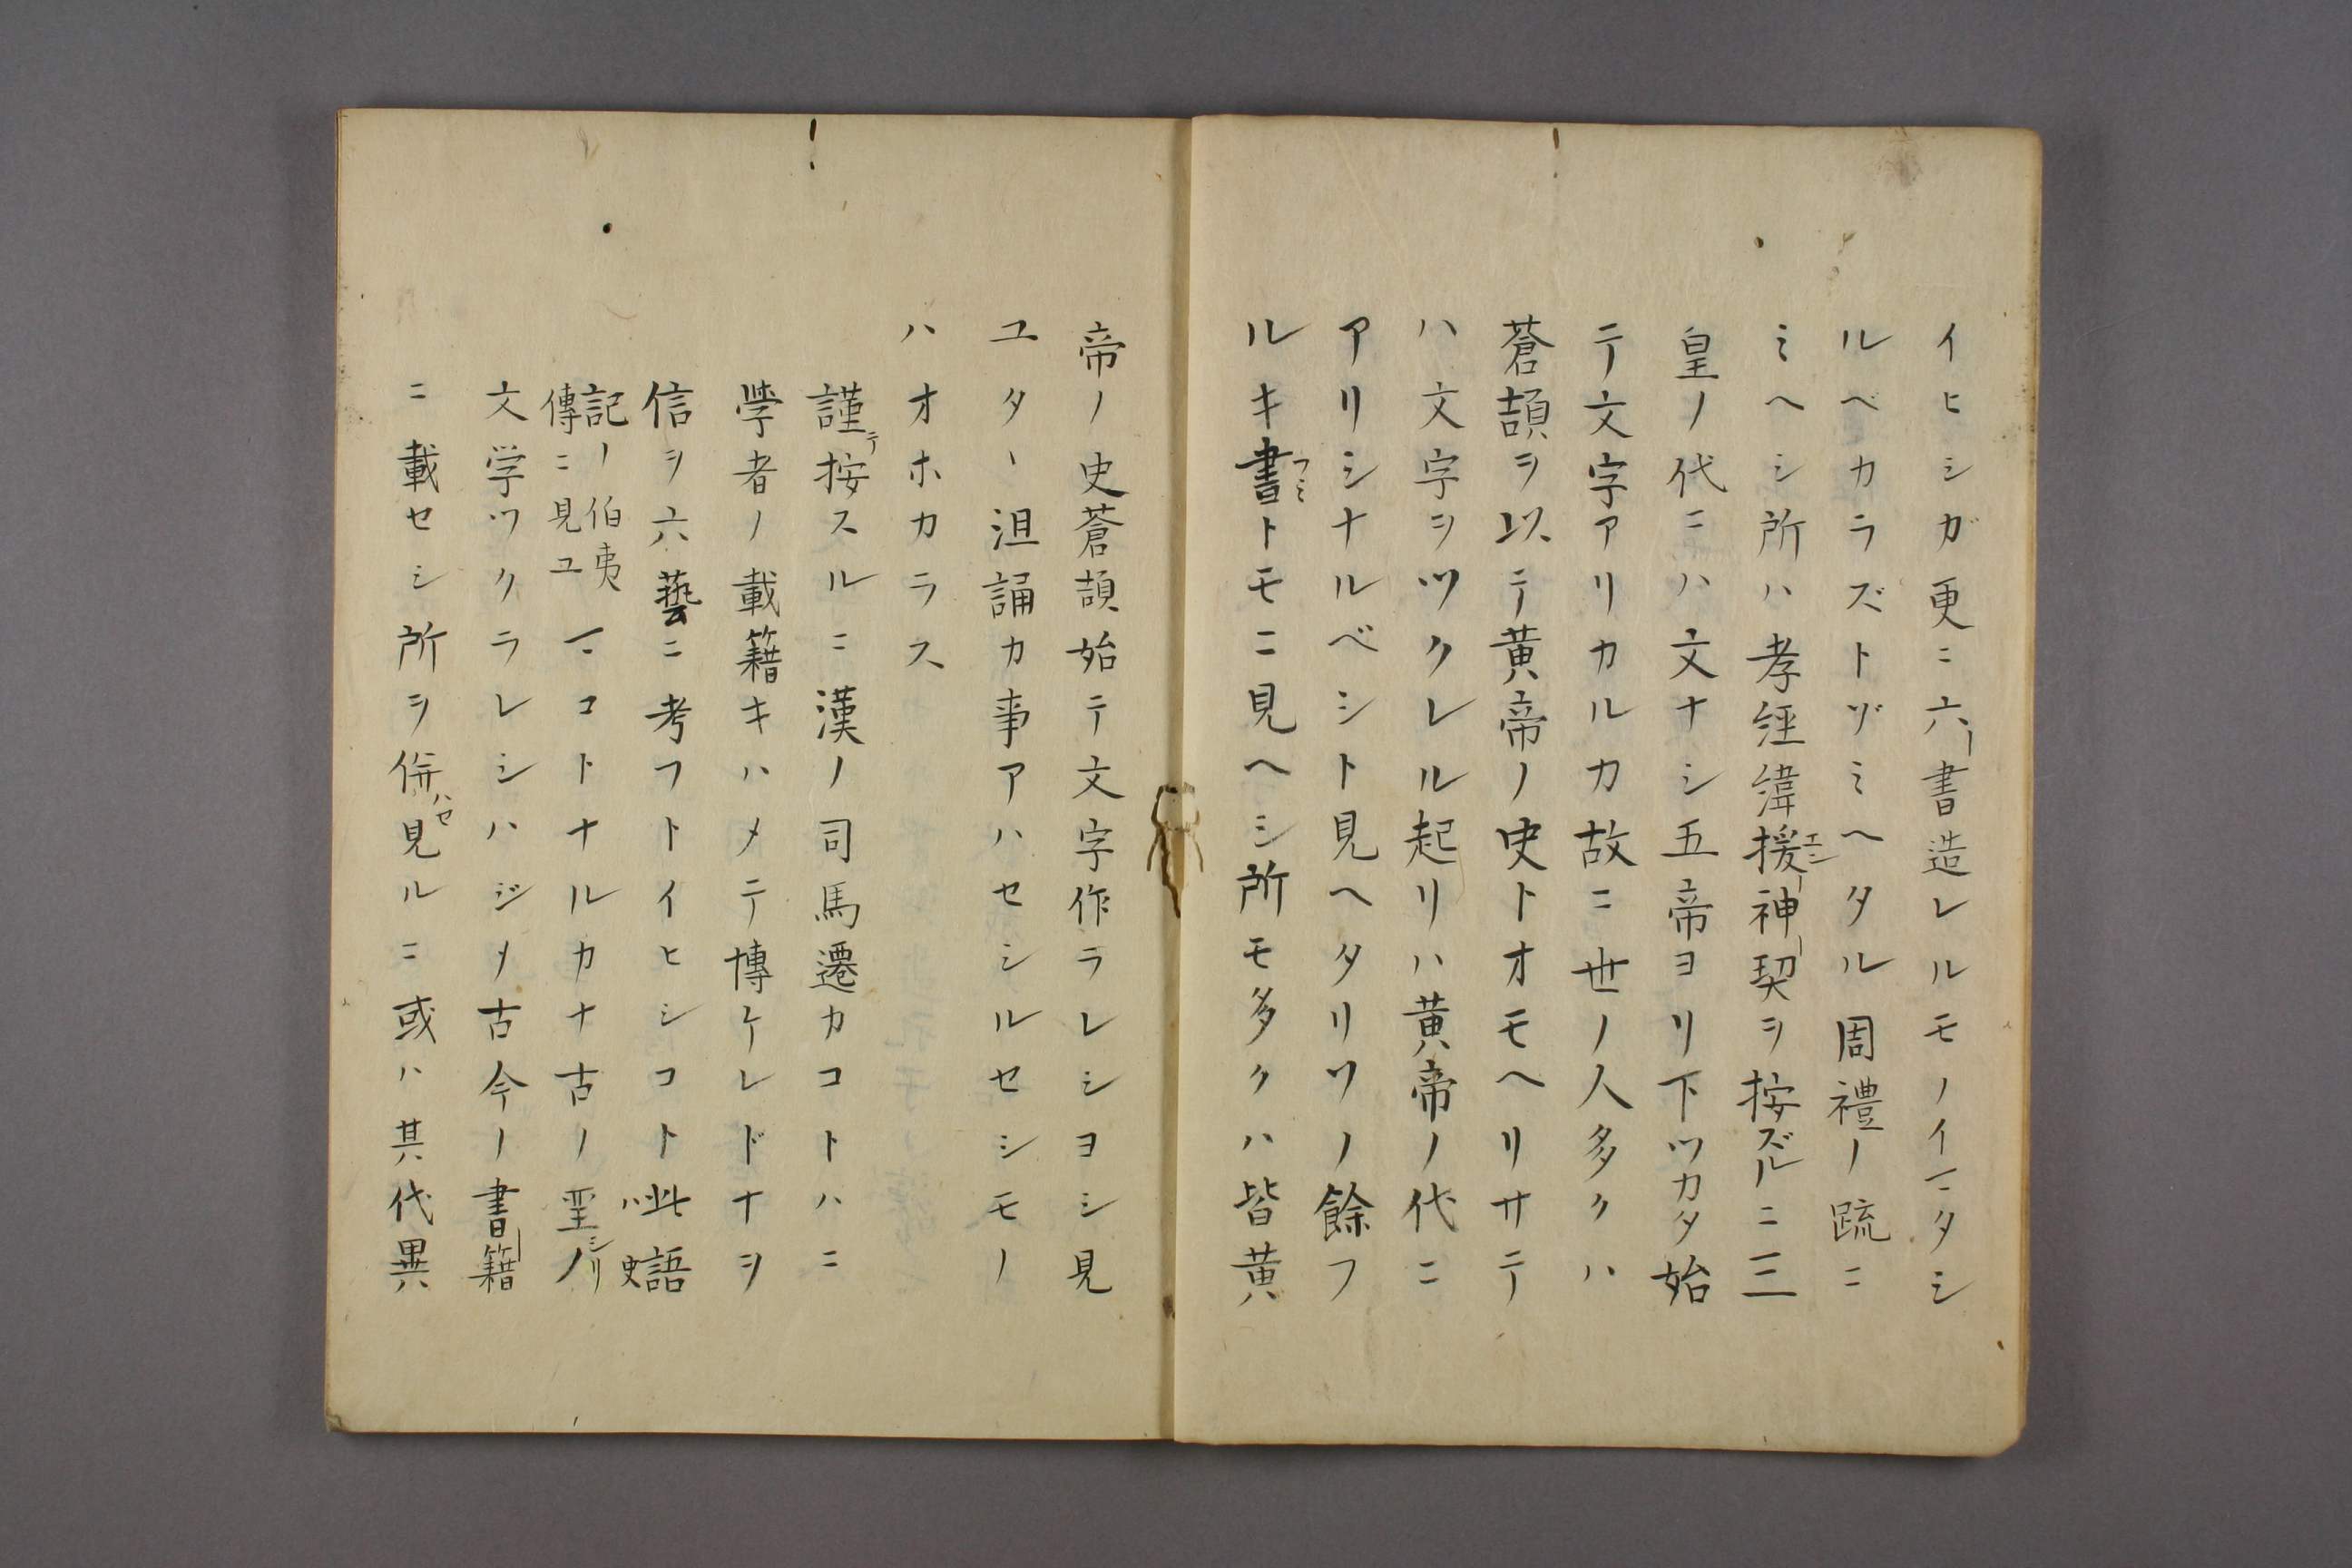 イヒシガ更ニ六書造レルモノイマタシ
ルベカラズトヅミヘタル周禮ノ䟽ニ
ミヘシ所ハ孝経緯援エン神契ヲ按ズルニ三
皇ノ代ニハ文ナシ五帝ヨリ下ツカタ始
テ文字アリカルカ故ニ世ノ人多クハ
蒼頡ヲ以テ黄帝ノ史トオモヘリサテ
ハ文字ヲツクレル起リハ黄帝ノ代ニ
アリシナルベシト見ヘタリソノ餘フ
ルキ書フミトモニ見ヘシ所モ多クハ皆黄
帝ノ史蒼頡始テ文字作ラレシヨシ見
ユタヽ沮誦カ事アハセシルセシモノ
ハオホカラス
謹テ按スルニ漢ノ司馬遷カコトハニ
學者ノ載籍キハメテ博ケレドナヲ
信ヲ六藝ニ考フトイヒシコト此語ハ史
記ノ伯夷傳ニ見ユマコトナルカナ古ノ聖シリノ
文学ツクラレシハジメ古今ノ書籍
ニ載セシ所ヲ併ハセ見ルニ或ハ其代異